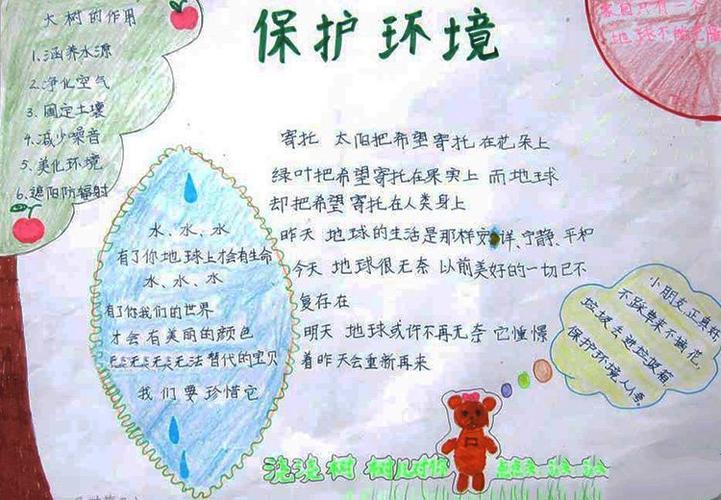 保护环境
大树的作用
1.涵养水源
2.净化空气
3.固定土壤
4.减少噪音
5.美化环境
6.遮阳防辐射
家园只有一个
地球不能
寄托 太阳把希望寄托在花朵上
绿叶把希望寄托在果实上 而地球
却把希望寄托在人类身上
昨天 地球的生活是那样安详、宁静、平和
今天 地球很无奈 以前美好的一切已不
复存在
明天 地球或许不再无奈 它憧憬
着昨天会重新再来
水、水、水
有了你地球上才会有生命
水、水、水
有了你我们的世界
才会有美丽的颜色
无法替代的宝贝
我们要珍惜它
小朋友
不踩草来不摘花,
垃圾丢进垃圾箱,
保护环境人人
浇浇树 树儿对你